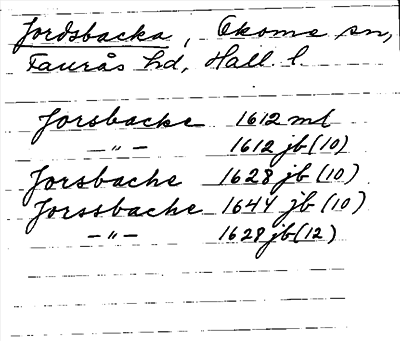 Jordsbacka, Okome sn,
Faurås hd, Hall. l.
Jorsbacke 1612 ml
—"— 1612 jb (10)
Jorsbache 1628 jb (10)
Jorssbache 1644 jb (10)
—"— 1628 jb (12)